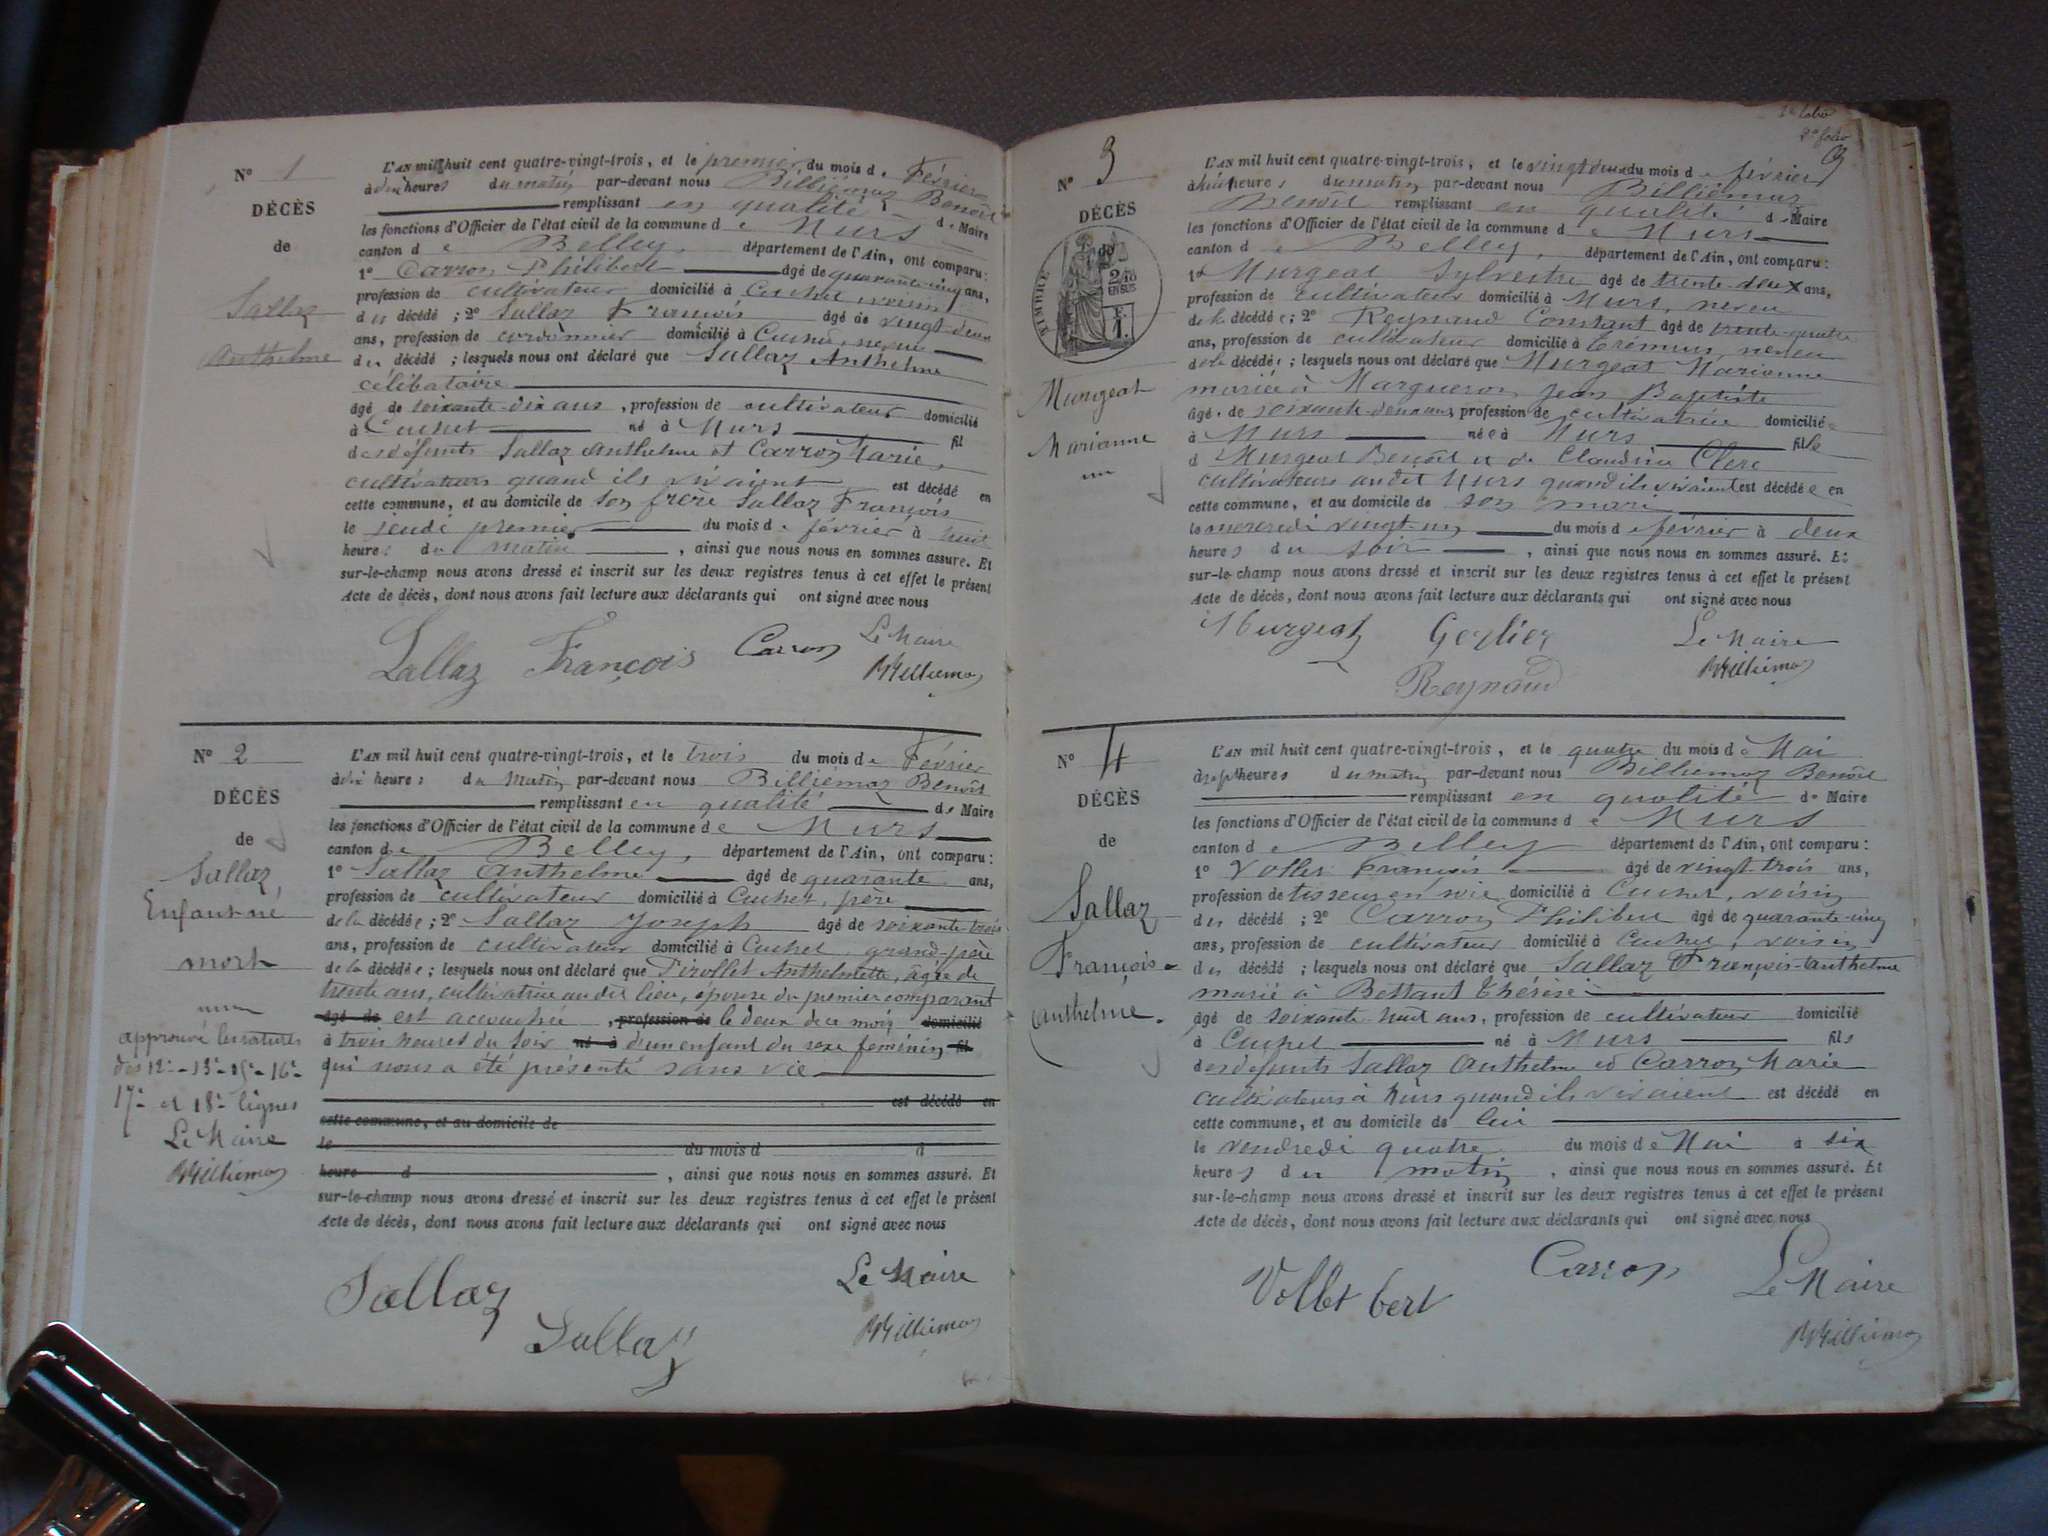 N° 1
DÉCÈS
de
Sallaz
Anthelme
L'AN mil huit cent quatre-vingt-trois, et le premier du mois de Février
à dix heures du matin par-devant nous Billiémaz Benoît
remplissant en qualité de Maire
les fonctions d'Officier de l'état civil de la commune de Murs
canton de Belley, département de l'Ain, ont comparu :
1° Carron Philibert âgé de quarante-cinq ans,
profession de cultivateur domicilié à Cuchet, voisin
du décédé ; 2° Sallaz François âgé de vingt-deux
ans, profession de cordonnier domicilié à Cuchet, neveu
du décédé ; lesquels nous ont déclaré que Sallaz Anthelme
célibataire
âgé de soixante-dix ans, profession de cultivateur domicilié
à Cuchet né à Murs fil
des défunts Sallaz Anthelme et Carron Marie,
cultivateurs quand ils vivaient est décédé en
cette commune, et au domicile de son frère Sallaz François
le jeudi premier du mois de février à huit
heures du matin, ainsi que nous nous en sommes assuré. Et
sur-le-champ nous avons dressé et inscrit sur les deux registres tenus à cet effet le présent
Acte de décès, dont nous avons fait lecture aux déclarants qui ont signé avec nous
Sallaz François Carron Le Maire
Billiémaz
N° 2
DÉCÈS
de
Sallaz,
Enfant né
mort
approuvé les ratures
des 12e - 13e - 15e - 16e -
17e et 18e lignes
Le Maire
Billiémaz
L'AN mil huit cent quatre-vingt-trois, et le trois du mois de Février
à dix heures du matin par-devant nous Billiémaz Benoît
remplissant en qualité de Maire
les fonctions d'Officier de l'état civil de la commune de Murs
canton de Belley, département de l'Ain, ont comparu :
1° Sallaz Anthelme âgé de quarante ans,
profession de cultivateur domicilié à Cuchet, père
de la décédée ; 2° Sallaz Joseph âgé de soixante-trois
ans, profession de cultivateur domicilié à Cuchet, grand-père
de la décédée ; lesquels nous ont déclaré que Pirollet Anthelmette, âgée de
trente ans, cultivatrice au dit lieu, épouse du premier comparant
âgé de est accouchée, profession de le deux de ce mois domicilié
à trois heures du soir né à d'un enfant du sexe féminin fil
qui nous a été présenté sans vie
est décédé en
cette commune, et au domicile de
le du mois d à
heure d , ainsi que nous nous en sommes assuré. Et
sur-le-champ nous avons dressé et inscrit sur les deux registres tenus à cet effet le présent
Acte de décès, dont nous avons fait lecture aux déclarants qui ont signé avec nous
Sallaz Le Maire
Sallaz Billiémaz
2e folio
3
N° 3
DÉCÈS
de
TIMBRE
2/10
EN SUS
Murgeat
Marianne
L'AN mil huit cent quatre-vingt-trois, et le vingt deux du mois de février
à huit heures du matin par-devant nous Billiémaz
Benoît remplissant en qualité de Maire
les fonctions d'Officier de l'état civil de la commune de Murs
canton de Belley, département de l'Ain, ont comparu :
1° Murgeat Sylvestre âgé de trente-deux ans,
profession de cultivateur domicilié à Murs, neveu
de la décédée ; 2° Reynaud Constant âgé de trente-quatre
ans, profession de cultivateur domicilié à Trémurs, neveu
de la décédée ; lesquels nous ont déclaré que Murgeat Marianne
mariée à Margueron Jean Baptiste
âgée de soixante-deux ans, profession de cultivatrice domiciliée
à Murs née à Murs fille
d Murgeat Benoît et de Claudine Clerc
cultivateurs audit Murs quand ils vivaient est décédée en
cette commune, et au domicile de son mari
le mercredi vingt-un du mois de février à deux
heures du soir, ainsi que nous nous en sommes assuré. Et
sur-le-champ nous avons dressé et inscrit sur les deux registres tenus à cet effet le présent
Acte de décès, dont nous avons fait lecture aux déclarants qui ont signé avec nous
Murgeat Le Maire
Reynaud Billiémaz
N° 4
DÉCÈS
de
Sallaz
François-
Anthelme.
L'AN mil huit cent quatre-vingt-trois, et le quatre du mois de Mai
à sept heures du matin par-devant nous Billiémaz Benoît
remplissant en qualité de Maire
les fonctions d'Officier de l'état civil de la commune de Murs
canton de Belley département de l'Ain, ont comparu :
1° Vollet François âgé de vingt-trois ans,
profession de tisseur en soie domicilié à Cuchet, voisin
du décédé ; 2° Carron Philibert âgé de quarante-cinq
ans, profession de cultivateur domicilié à Cuchet, voisin
du décédé ; lesquels nous ont déclaré que Sallaz François-Anthelme
marié à Bettant Thérèse
âgé de soixante-huit ans, profession de cultivateur domicilié
à Cuchet né à Murs fils
des défunts Sallaz Anthelme et Carron Marie
cultivateurs à Murs quand ils vivaient est décédé en
cette commune, et au domicile de lui
le vendredi quatre du mois de Mai à six
heures du matin, ainsi que nous nous en sommes assuré. Et
sur-le-champ nous avons dressé et inscrit sur les deux registres tenus à cet effet le présent
Acte de décès, dont nous avons fait lecture aux déclarants qui ont signé avec nous
Carron Le Maire
Billiémaz